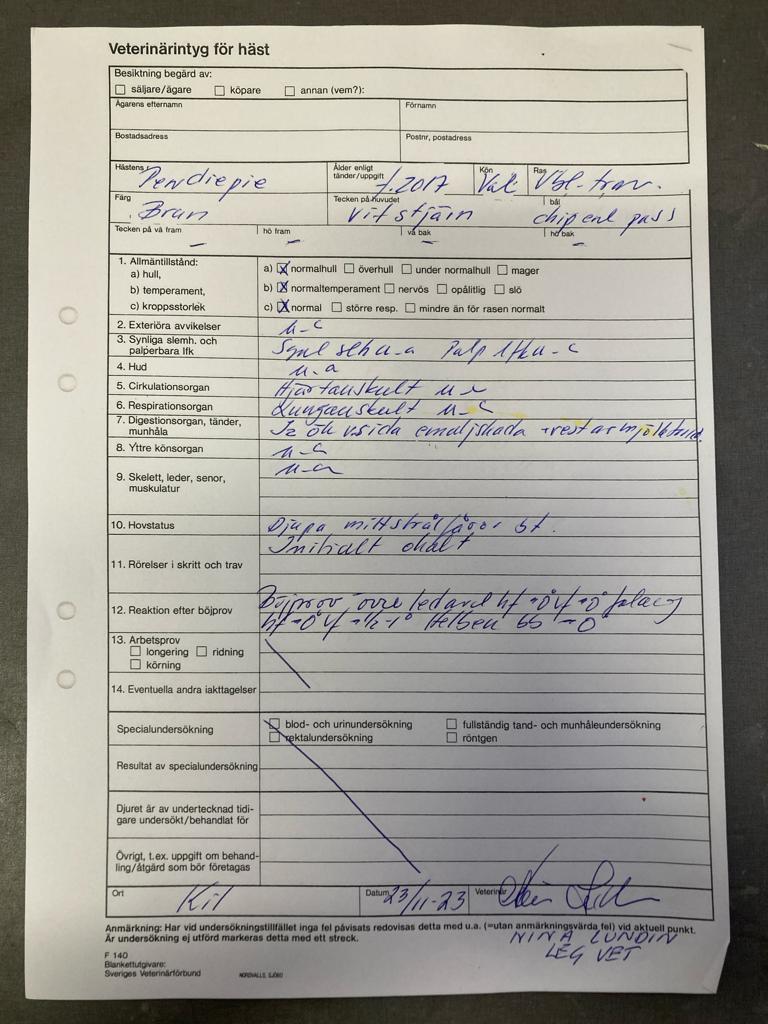 Veterinärintyg för häst
Besiktning begärd av:
säljare/ägare köpare annan (vem?):
Ägarens efternamn Förnamn
Bostadsadress Postnr, postadress
Hästens Pewdiepie Ålder enligt tänder/uppgift f.2017 Kön Val. Ras Vbl-trav.
Färg Brun Tecken på huvudet vit stjärn bål chip enl pass
Tecken på vä fram – hö fram – vä bak – hö bak –
1. Allmäntillstånd:
a) hull, a) X normalhull överhull under normalhull mager
b) temperament, b) X normaltemperament nervös opålitlig slö
c) kroppsstorlek c) X normal större resp. mindre än för rasen normalt
2. Exteriöra avvikelser u-a
3. Synliga slemh. och palperbara lfk Synl slh u-a Palp lfk u-a
4. Hud u-a
5. Cirkulationsorgan Hjärtauskult u-a
6. Respirationsorgan Lungauskult u-a
7. Digestionsorgan, tänder, munhåla emaljskada
8. Yttre könsorgan u-a
9. Skelett, leder, senor, muskulatur u-a
10. Hovstatus Djupa mittstrålfåror bf.
11. Rörelser i skritt och trav Initialt ohalt
12. Reaktion efter böjprov Böjprov övre ledavd hf =0 vf =0 falang
hf =0 vf =½-1° Helben bb =0
13. Arbetsprov
longering ridning
körning
14. Eventuella andra iakttagelser
Specialundersökning blod- och urinundersökning fullständig tand- och munhåleundersökning
rektalundersökning röntgen
Resultat av specialundersökning
Djuret är av undertecknad tidi-
gare undersökt/behandlat för
Övrigt, t.ex. uppgift om behand-
ling/åtgärd som bör företagas
Ort Kil Datum 23/11-23 Veterinär
Anmärkning: Har vid undersökningstillfället inga fel påvisats redovisas detta med u.a. (=utan anmärkningsvärda fel) vid aktuell punkt.
Är undersökning ej utförd markeras detta med ett streck.
NINA LUNDIN
LEG VET
F 140
Blankettutgivare:
Sveriges Veterinärförbund NORDVALLS, SJÖBO